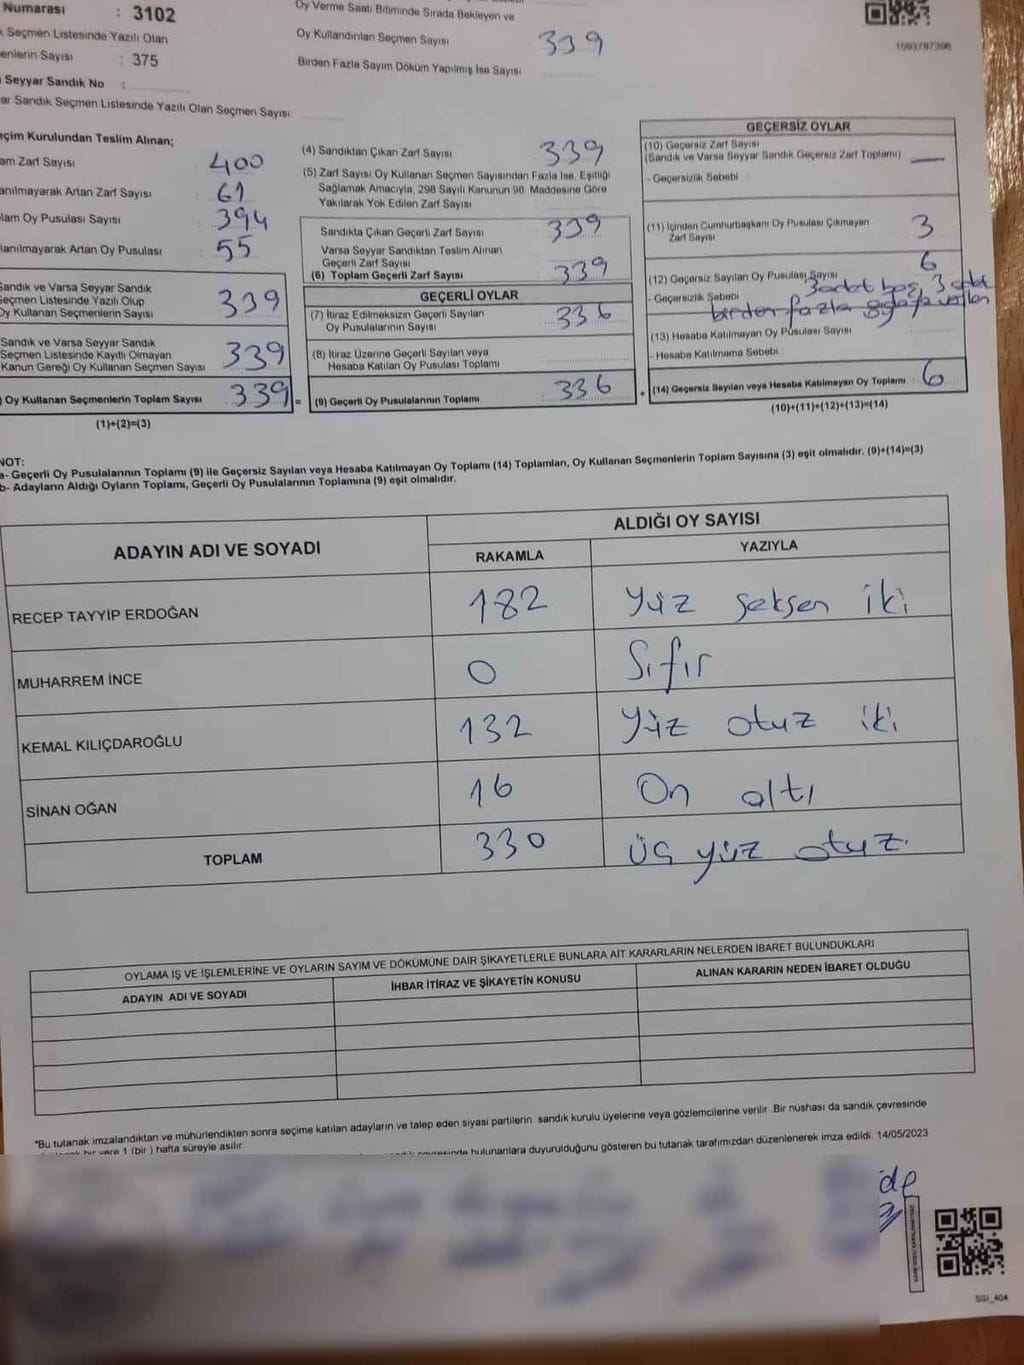 Numarası : 3102
Seçmen Listesinde Yazılı Olan
Sayısı : 375
Seyyar Sandık No :
Sandık Seçmen Listesinde Yazılı Olan Seçmen Sayısı
Oy Verme Saati Bitiminde Sırada Bekleyen ve
Oy Kullandırılan Seçmen Sayısı 339
Birden Fazla Sayım Döküm Yapılmış İse Sayısı
Kurulundan Teslim Alınan;
Zarf Sayısı 400
Artan Zarf Sayısı 61
Oy Pusulası Sayısı 394
Artan Oy Pusulası 55
Sandık ve Varsa Seyyar Sandık
Seçmen Listesinde Yazılı Olup
Oy Kullanan Seçmenlerin Sayısı 339
Sandık ve Varsa Seyyar Sandık
Seçmen Listesinde Kayıtlı Olmayan
Kanun Gereği Oy Kullanan Seçmen Sayısı 339
Oy Kullanan Seçmenlerin Toplam Sayısı 339 =
(1)+(2)=(3)
(4) Sandıktan Çıkan Zarf Sayısı 339
(5) Zarf Sayısı Oy Kullanan Seçmen Sayısından Fazla İse, Eşitliği
Sağlamak Amacıyla, 298 Sayılı Kanunun 98. Maddesine Göre
Yakılarak Yok Edilen Zarf Sayısı
Sandıkta Çıkan Geçerli Zarf Sayısı 339
Varsa Seyyar Sandıktan Teslim Alınan
Geçerli Zarf Sayısı
(6) Toplam Geçerli Zarf Sayısı 339
GEÇERLİ OYLAR
(7) İtiraz Edilmeksizin Geçerli Sayılan
Oy Pusulalarının Sayısı 336
(8) İtiraz Üzerine Geçerli Sayılan veya
Hesaba Katılan Oy Pusulası Toplamı
(9) Geçerli Oy Pusulalarının Toplamı 336 +
GEÇERSİZ OYLAR
(10) Geçersiz Zarf Sayısı
(Sandık ve Varsa Seyyar Sandık Geçersiz Zarf Toplamı) —
- Geçersizlik Sebebi
(11) İçinden Cumhurbaşkanı Oy Pusulası Çıkmayan
Zarf Sayısı 3
(12) Geçersiz Sayılan Oy Pusulası Sayısı 6
- Geçersizlik Sebebi 3 adet boş, 3 adet
birden fazla
(13) Hesaba Katılmayan Oy Pusulası Sayısı
- Hesaba Katılmama Sebebi
(14) Geçersiz Sayılan veya Hesaba Katılmayan Oy Toplamı 6
(10)+(11)+(12)+(13)=(14)
NOT:
a- Geçerli Oy Pusulalarının Toplamı (9) ile Geçersiz Sayılan veya Hesaba Katılmayan Oy Toplamı (14) Toplamları, Oy Kullanan Seçmenlerin Toplam Sayısına (3) eşit olmalıdır. (9)+(14)=(3)
b- Adayların Aldığı Oyların Toplamı, Geçerli Oy Pusulalarının Toplamına (9) eşit olmalıdır.
ADAYIN ADI VE SOYADI
ALDIĞI OY SAYISI
RAKAMLA YAZIYLA
RECEP TAYYİP ERDOĞAN 182 Yüz seksen iki
MUHARREM İNCE 0 Sıfır
KEMAL KILIÇDAROĞLU 132 Yüz otuz iki
SİNAN OĞAN 16 On altı
TOPLAM 330 Üç yüz otuz
OYLAMA İŞ VE İŞLEMLERİNE VE OYLARIN SAYIM VE DÖKÜMÜNE DAİR ŞİKAYETLERLE BUNLARA AİT KARARLARIN NELERDEN İBARET BULUNDUKLARI
ADAYIN ADI VE SOYADI İHBAR İTİRAZ VE ŞİKAYETİN KONUSU ALINAN KARARIN NEDEN İBARET OLDUĞU
*Bu tutanak imzalandıktan ve mühürlendikten sonra seçime katılan adayların ve talep eden siyasi partilerin sandık kurulu üyelerine veya gözlemcilerine verilir. Bir nüshası da sandık çevresinde
bir yere 1 (bir) hafta süreyle asılır.
bulunanlara duyurulduğunu gösteren bu tutanak tarafımızdan düzenlenerek imza edildi. 14/05/2023